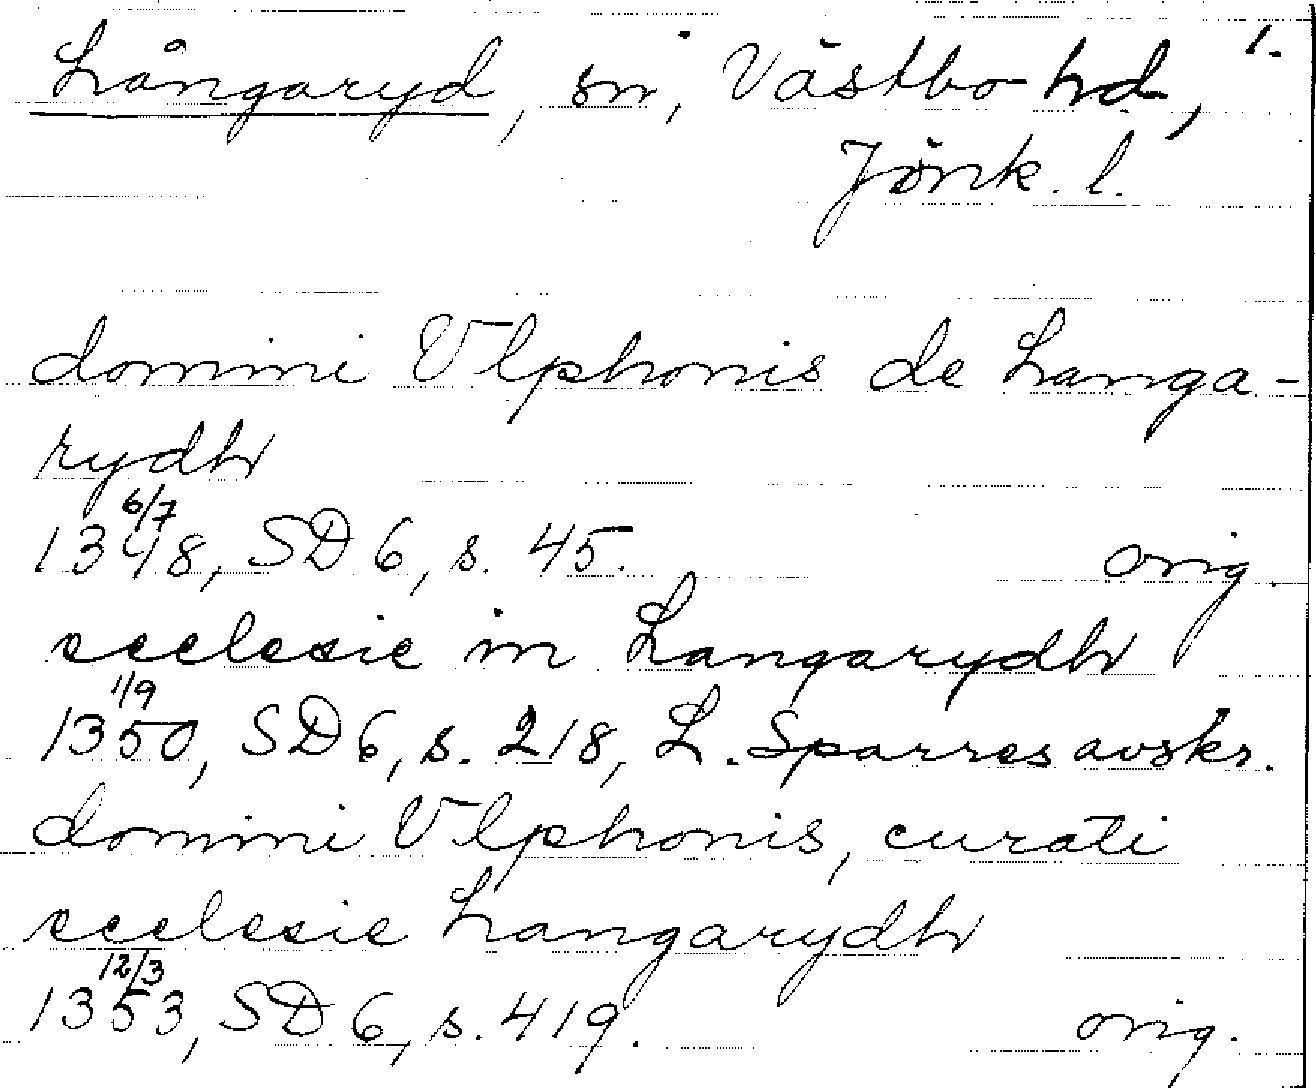 Långaryd, sn, Västbo hd, 1.
Jönk. l.
domini Vlphonis de Langa-
rydh
6/7
1348, SD 6, s. 45. orig.
ecclesie in Langarydh
1/9
1350, SD 6, s. 218, L. Sparres avskr.
domini Vlphonis, curati
ecclesie Langarydh
12/3
1353, SD 6, s. 419. orig.